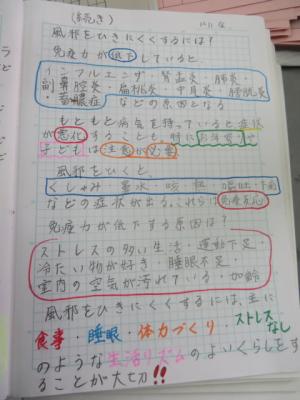 (続き)
風邪をひきにくくするには?
免疫力が低下していると、
インフルエンザ・腎盂炎・肺炎・
副鼻腔炎・扁桃炎・中耳炎・膀胱炎
・蓄膿症などの原因となる
もともと病気を持っていると症状
が悪化することも。特にお年寄りや
子どもは注意が必要
風邪をひくと、
くしゃみ・鼻水・咳・痰・嘔吐・下痢
などの症状が出る。これらは免疫反応
免疫力が低下する原因は?
ストレスの多い生活・運動不足・
冷たい物が好き・睡眠不足・
室内の空気が汚れている・加齢
風邪をひきにくくするには、主に
食事・睡眠・体力づくり・ストレスなし
のような生活リズムのよいくらしをす
ることが大切!!